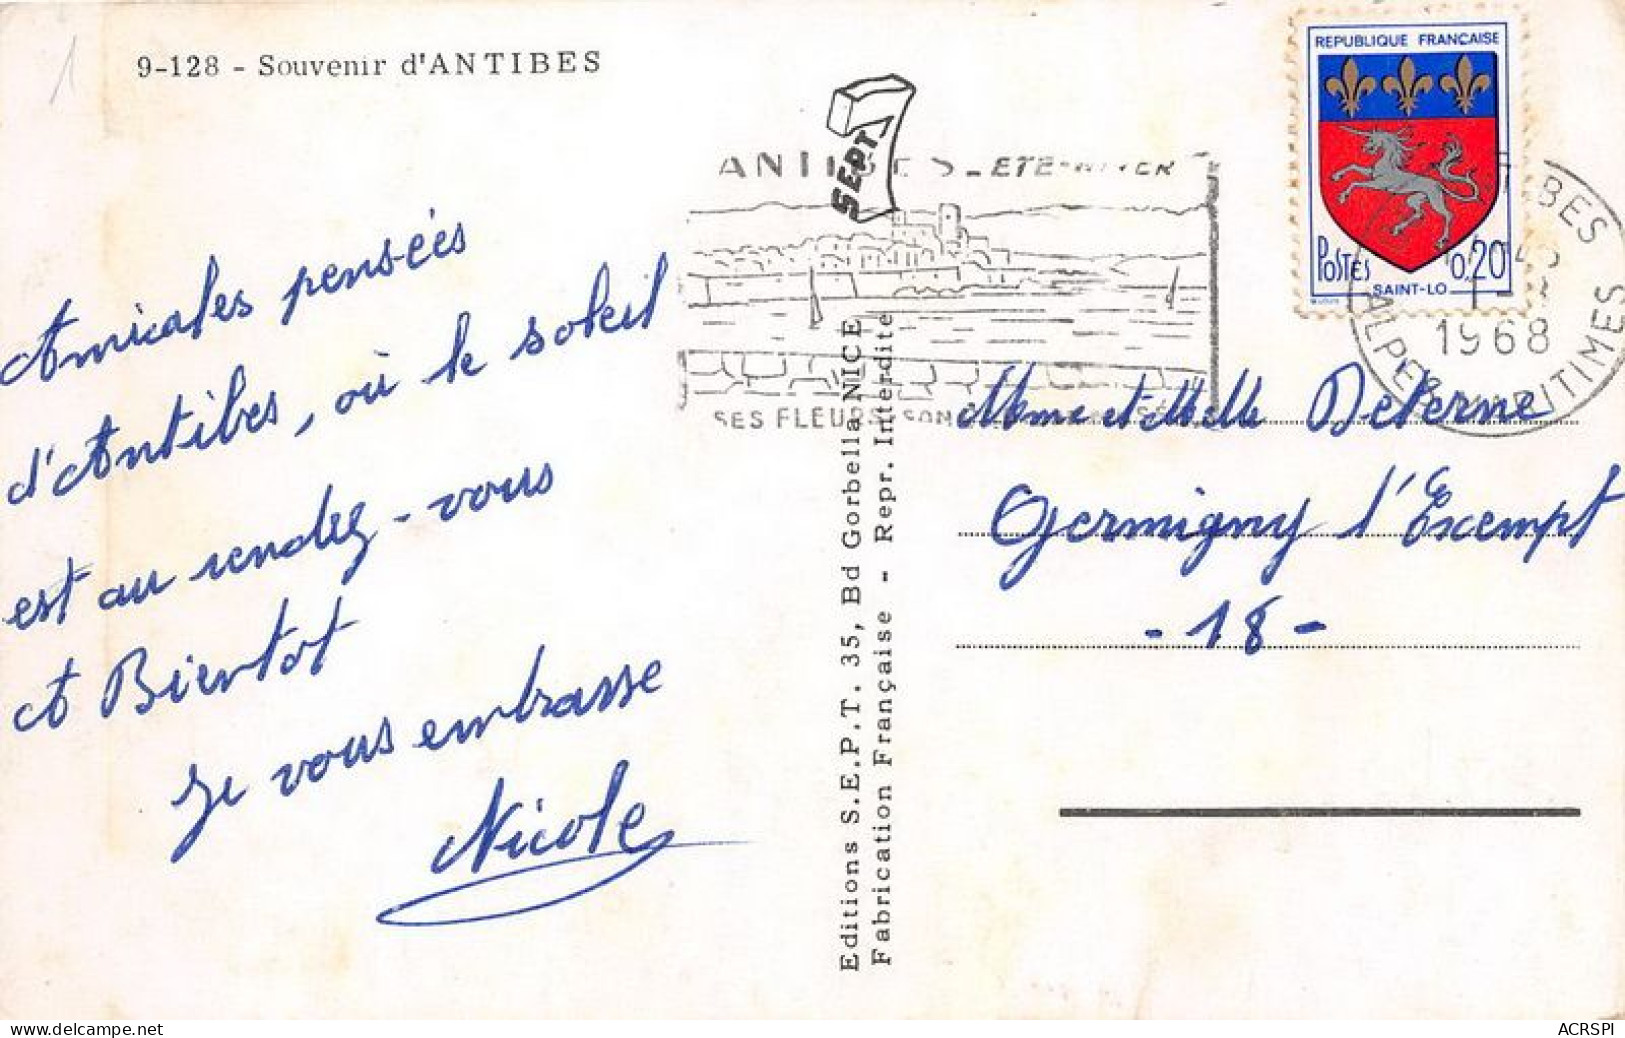 1
9-128 - Souvenir d'ANTIBES
Amicales pensées
d'Antibes, où le soleil
est au rendez-vous
A Bientot
Je vous embrasse
Nicole
SEPT
ANTIBES - ETE-HIVER
SES FLEURS SON
Editions S.E.P.T. 35, Bd Gorbella NICE
Fabrication Française - Repr. Interdite
REPUBLIQUE FRANÇAISE
POSTES 0,20
SAINT-LO
ANTIBES
1968
ALPES MARITIMES
Mme et Melle Deterne
Germigny l'Exempt
- 18 -
delcampe.net
ACRSPI